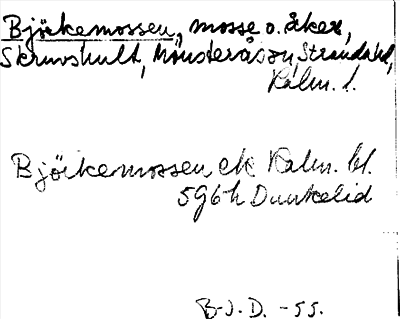 Björkemossen, mosse o. åker,
Skruvshult, Mönsterås sn, Stranda hd,
Kalm. l.
Björkemossen ek Kalm. bl.
596h Dunkelid
B-J. D. -55.